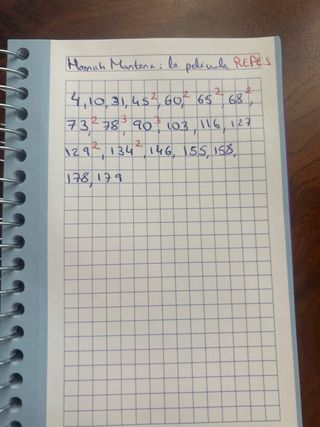 Hannah Montana: la película REPES
4, 10, 31, 45², 60², 65², 68²,
73², 78³, 90³, 103, 116, 127
129², 134², 146, 155, 158,
178, 179